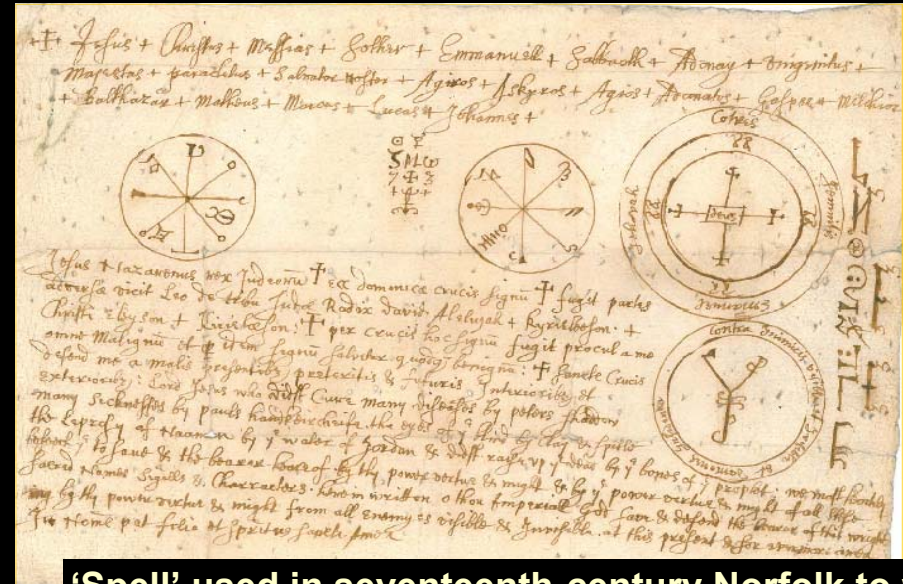 + Jesus + Christus + Messias + Sother + Emmanuell + Sabbaoth + Adonay + Unigenitus +
Majestas + paracletus + Salvator noster + Agiros + Askyros + Agios + Adonatos + Gasper + Melchior
+ Balthazar + Matheus + Marcus + Lucas + Johannes +
Coheris
Jehovah
Deus
Jesus Nazarenus rex Judeorū ✝ ecce dominicæ crucis signū ✝ fugit partes
adversæ vicit Leo de tribu Judæ Radix David. Alelujah + Kyrieleson. +
Christe eleyson + Kirieleeson: ✝ per crucis hoc signū fugit procul a me
omne Malignū et p item signū salvetur quoq benignū: ✝ sancte Crucis
defend me a malis presentibus preteritis & futuris Interioribs et
exterioriby: Lord Jesus who didst Cuere many diseases by peters shaddow
many sicknesses by pauls handkirchieife, the eyes of yᵉ blind by Clay & spitle
the Leprosy of Naaman by yᵉ water of Jordan & didst raise up yᵉ dead by yᵉ bones of yᵉ prophet. we most humbly
beseech yᵉ to save & the bearer heereof by thy power vertue & might & by yᵉ power vertue & might of all these
sacred Names Sigills & Charracters: herein written o thou Imperiall God save & defend the bearer of this wright
ing by thy power vertue & might from all enemyes visible & Invisible at this present & for
In Nomē pat felie et spiritus sancte Amen
‘Spell’ used in seventeenth-century Norfolk to